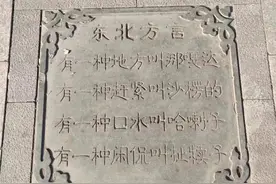 东北方言
有一种地方叫那旮达
有一种赶紧叫沙楞的
有一种口水叫哈喇子
有一种闲侃叫扯犊子